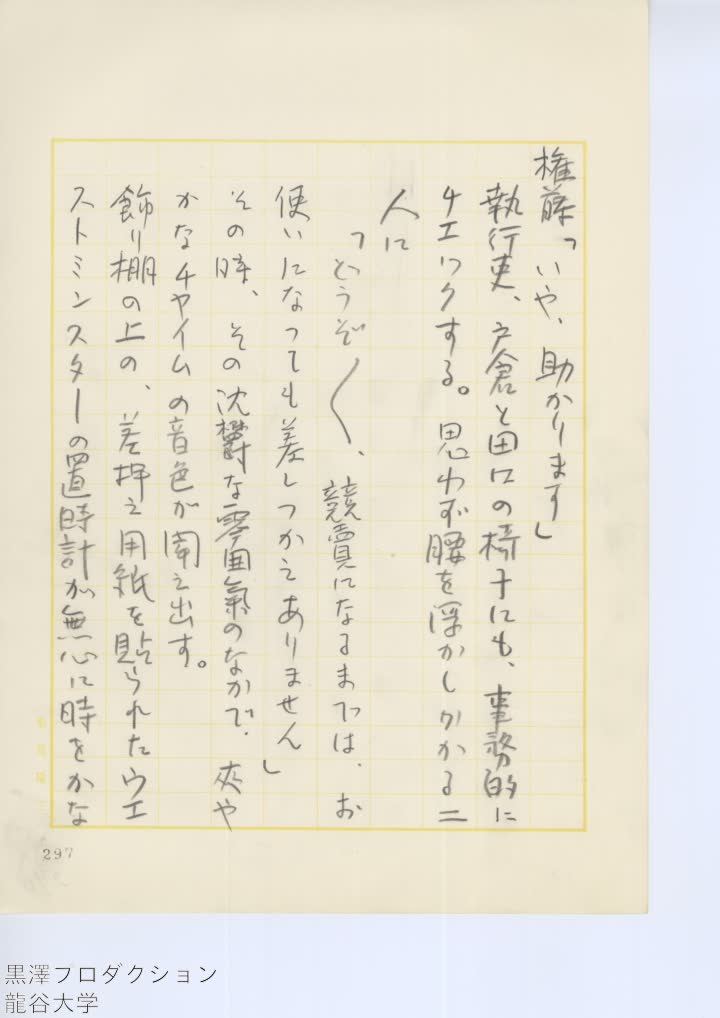 権藤「いや、助かります」
執行吏、戸倉と田口の椅子にも、事務的に
チエックする。思わず腰を浮かしかかる二
人に
「どうぞ〳〵、競売になるまでは、お
使いになっても差しつかえありません」
その時、その沈欝な雰囲氣のなかで、爽や
かなチャイムの音色が聞え出す。
飾り棚の上の、差押え用紙を貼られたウエ
ストミンスターの置時計が無心に時をかな
297
黒澤プロダクション
龍谷大学